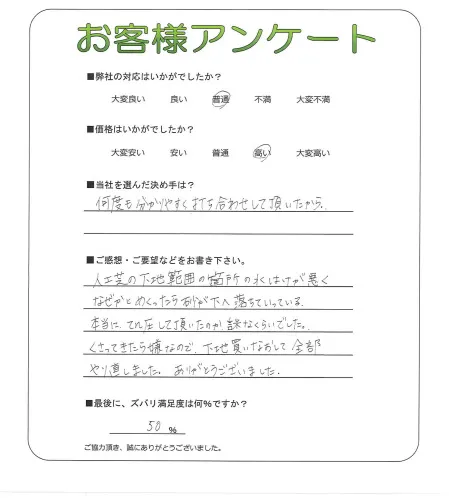 お客様アンケート
■弊社の対応はいかがでしたか?
大変良い 良い 普通 不満 大変不満
■価格はいかがでしたか?
大変安い 安い 普通 高い 大変高い
■当社を選んだ決め手は?
何度も分かりやすく打ち合わせして頂いたから。
■ご感想・ご要望などをお書き下さい。
人工芝の下地範囲の箇所の水はけが悪く
なぜかとめくったら砂が下へ落ちていっている。
本当は、して頂いたのか謎なくらいでした。
くさってきたら嫌なので、下地買いなおして全部
やり直しました。ありがとうございました。
■最後に、ズバリ満足度は何%ですか?
50 %
ご協力頂き、誠にありがとうございました。